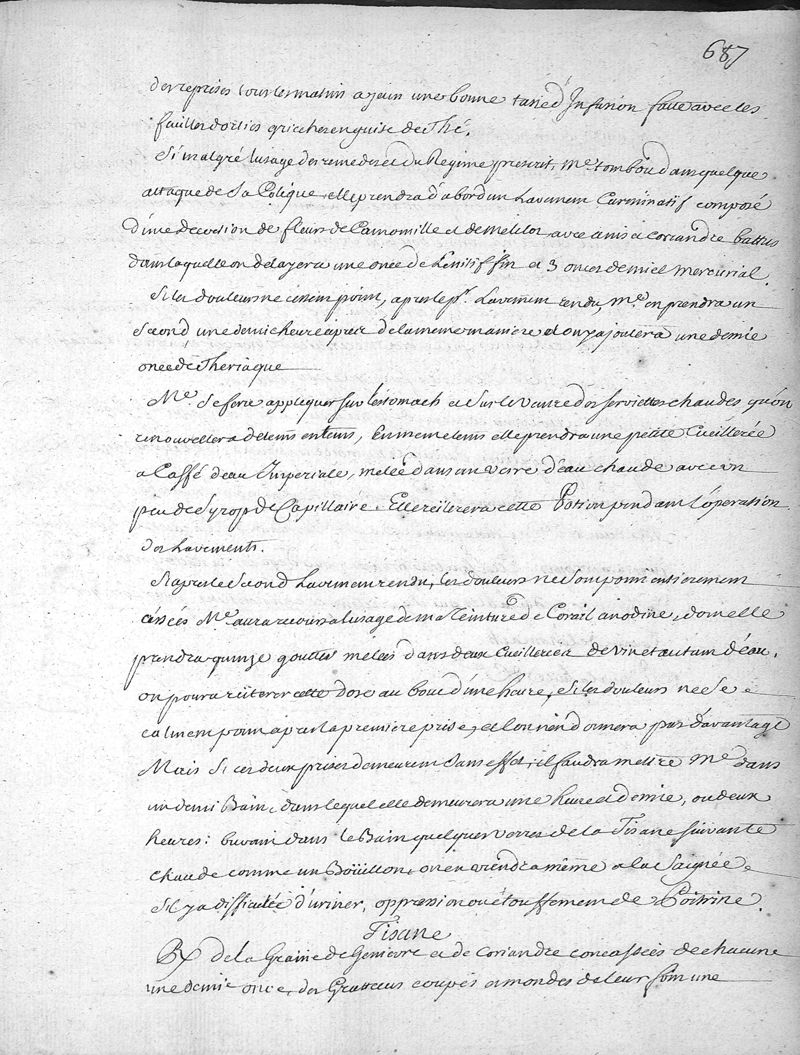 687
des reprises tous les matins a jeun une bonne tasse d'Infusion faite avec les
feuilles d'orties griecher en guise de Thé.
Si malgré l'usage des remedes et du Regime prescrit, Me. tomboit dans quelque
attaque de Sa Colique, elle prendra d'abord un Lavement Carminatif composé
d'une decoction de fleurs de Camomille et de melilot avec anis et coriandre battus
dans laquelle on delayera une once de Lenitif fin et 3 onces de miel mercurial.
Si les douleurs ne cessent point, apres le pr. Lavement rendu, Me. en prendra un
second, une demie heure apres de la meme maniere et on y ajoutera une demie
once de Theriaque
Me. Se fera appliquer sur l'estomach et sur le Ventre des serviettes chaudes qu'on
renouvellera de tems en tems, En meme tems elle prendra une petite Cueillerée
a Caffé d'eau Imperiale, melée dans un verre d'eau chaude avec un
peu de Syrop de Capillaire. Elle reiterera cette Potion pendant l'operation
des Lavements.
Si apres le Second Lavement rendu, les douleurs ne Sont point entierement
cessées Me. aura recours a l'usage de ma Teinture de Corail anodine, dont elle
prendra quinze gouttes melées dans deux Cueillerées de vin et autant d'eau,
on poura reiterer cette dose au bout d'une heure, Si les douleurs ne se
calment point apres la premiere prise, et l'on n'en donnera pas davantage
Mais Si ces deux prises demeurent Sans effet, il faudra mettre Me. dans
un demi Bain, dans lequel elle demeurera une heure et demie, ou deux
heures: buvant dans le Bain quelques verres de la Tisane suivante
chaude comme un Boüillon, on en viendra même a la Saignée
S'il y a difficulté d'uriner, oppression ou étouffement de Poitrine.
Tisane
Rx de la Graine de Genievre et de Coriandre concassées de chacune
une demie once, des Gratteeus coupés et mondes de leur foin une